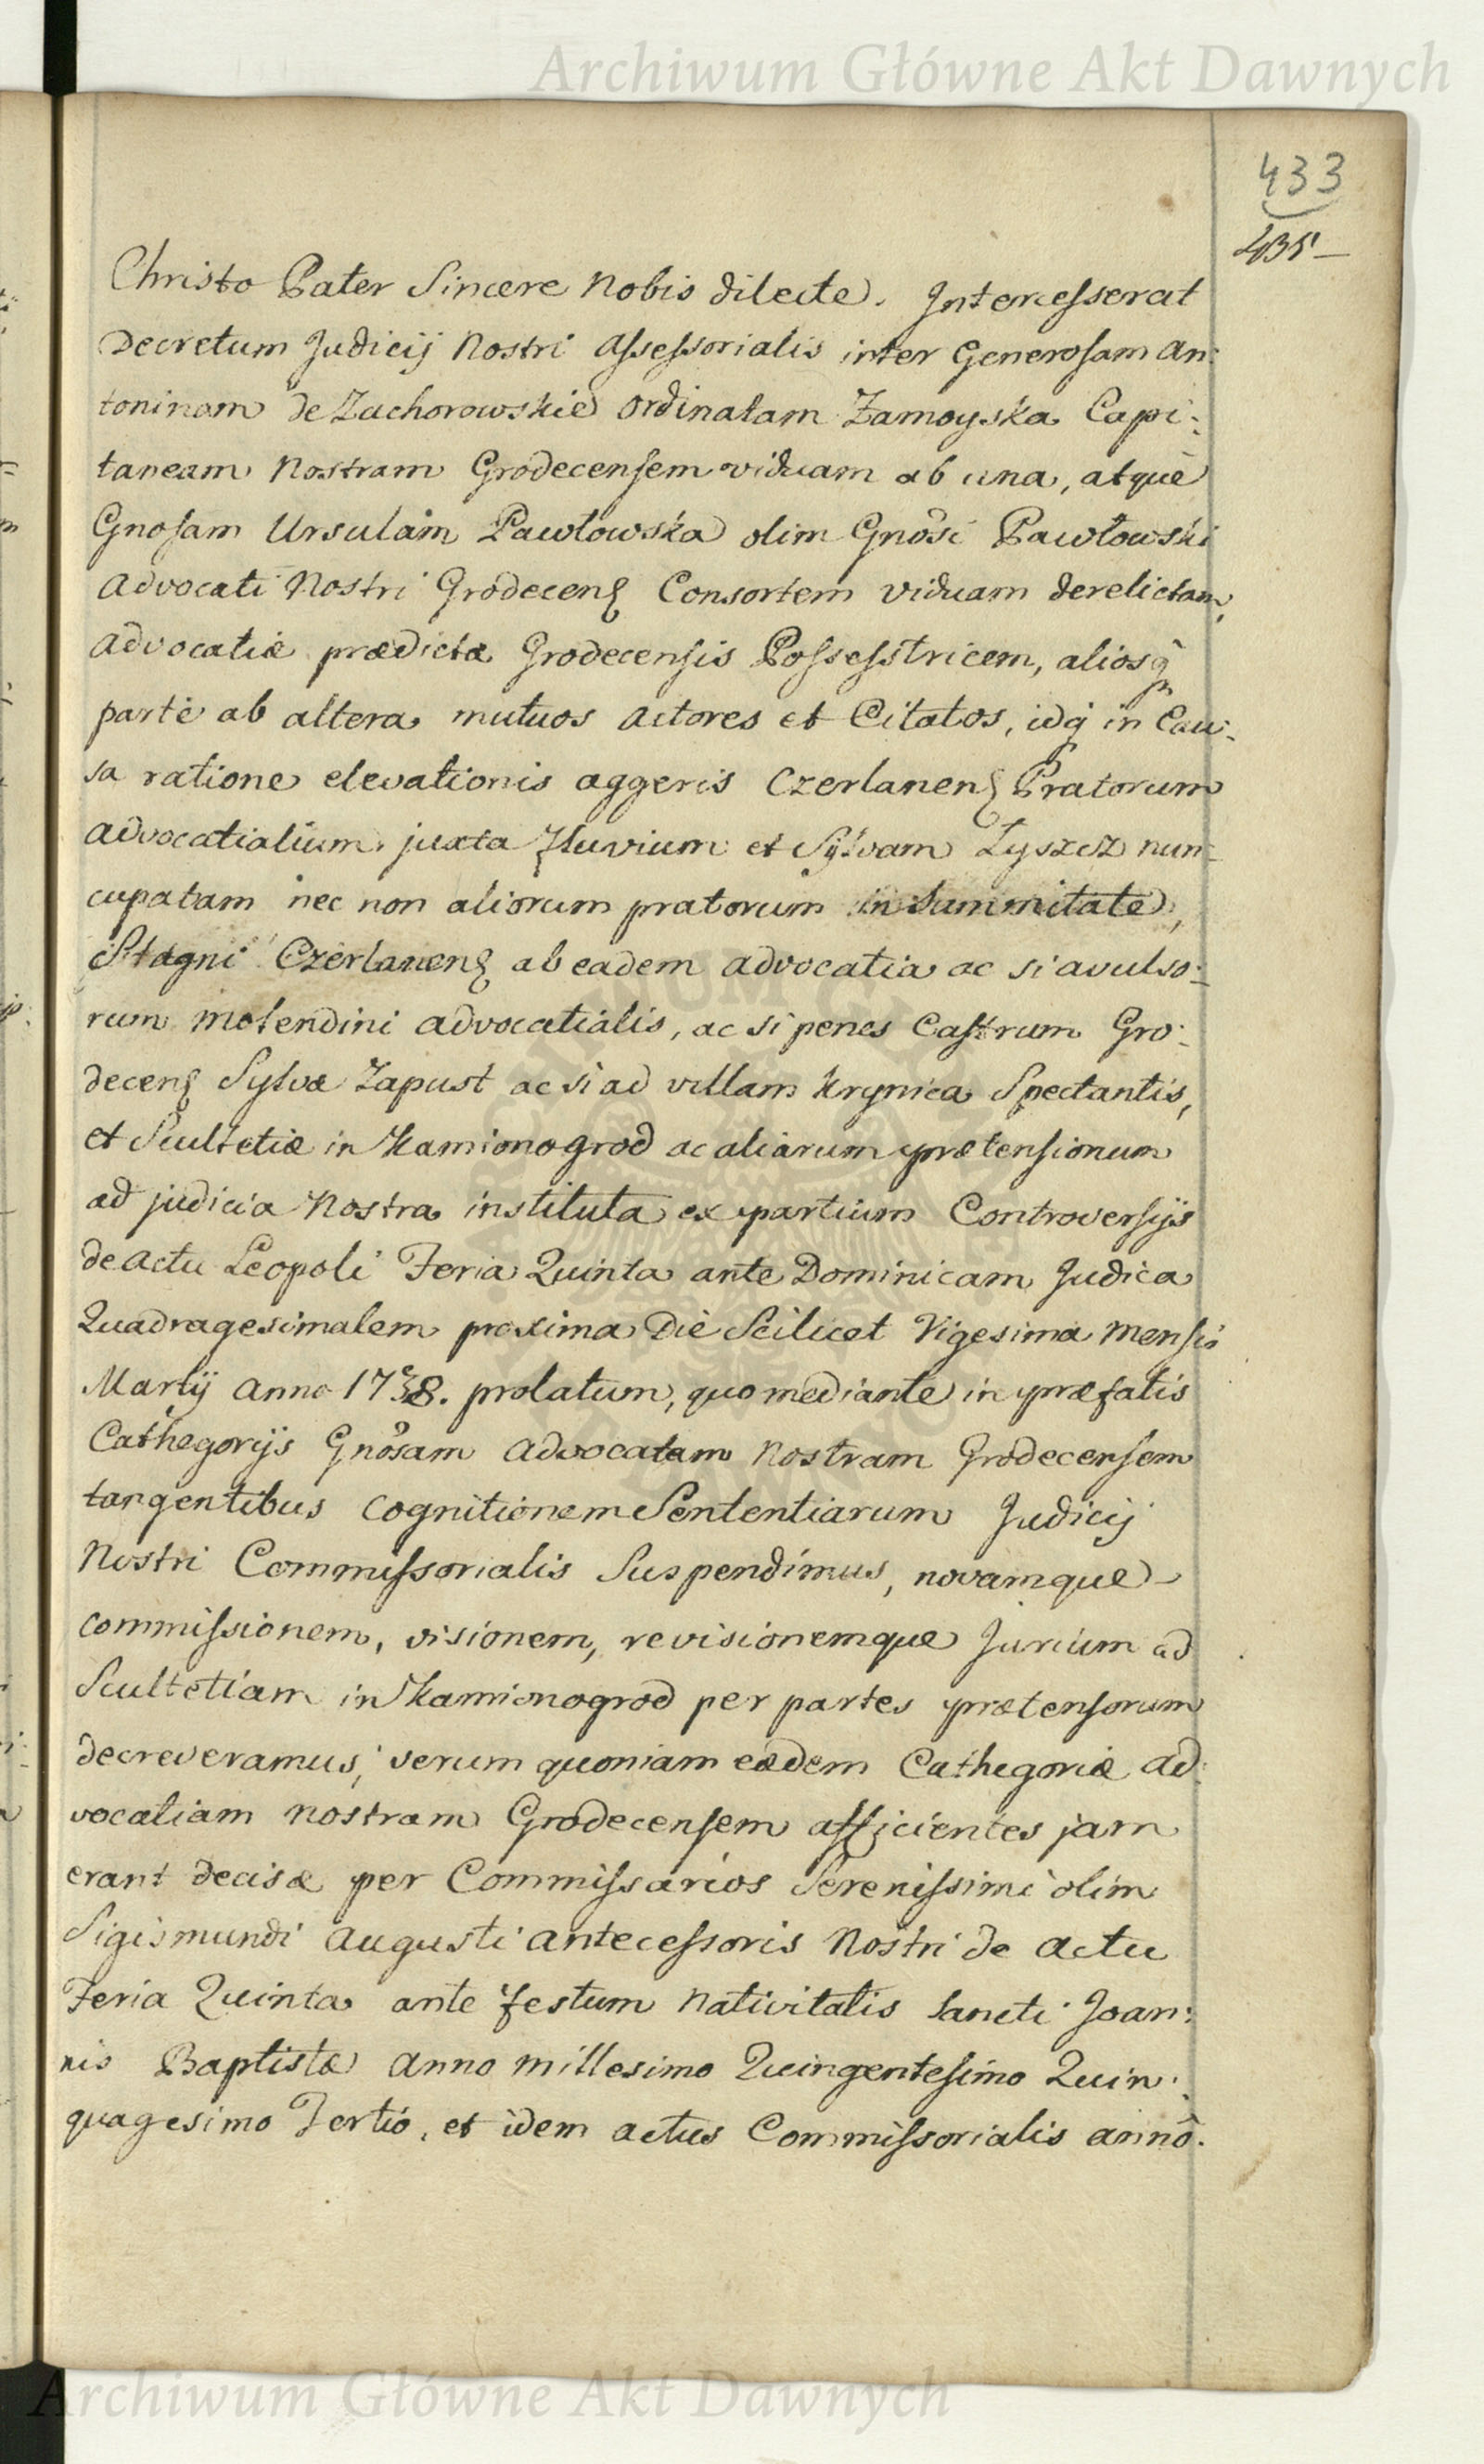 Archiwum Główne Akt Dawnych
433
435
Christo Pater Sincere Nobis dilecte. Intercesserat
Decretum Judicij Nostri assessorialis inter Generosam An:
toninam de Zachorowskie Ordinatam Zamoyska Capi:
taneam Nostram Grodecensem viduam ab una, atque
Gnosam Ursulam Pawłowska olim Gnosi Pawłowski
Advocati Nostri Grodecens Consortem viduam derelictam,
Advocatiæ prædictæ Grodecensis Possesstricem, aliosq
parte ab altera mutuos Actores et Citatos, idq in Cau:
sa ratione elevationis aggeris Czerlanens Pratorum
advocatialium juxta fluvium et Sylvam Łyszcz nun:
cupatam nec non aliorum pratorum in Summitate,
Stagni Czerlanens ab eadem advocatia ac si avulso:
rum molendini advocatialis, ac si penes Castrum Gro:
decens Sylvæ Zapust ac si ad villam Krynica Spectantis,
et Scultetiæ in Kamionogrod ac aliarum prætensionum
ad judicia Nostra instituta ex partium Controversijs
de actu Leopoli Feria Quinta ante Dominicam Judica
Quadragesimalem proxima Die Scilicet Vigesima mensis
Martij Anno 1738. prolatum, quo mediante in præfatis
Cathegorijs Gnosam Advocatam Nostram Grodecensem
tangentibus cognitionem Sententiarum Judicij
Nostri Commissorialis Suspendimus, novamque
commissionem, visionem, revisionemque Jurium ad
Scultetiam in Kamionogrod per partes prætensorum
decreveramus, verum quoniam eædem Cathegoriæ Ad:
vocatiam nostram Grodecensem afficientes jam
erant decisæ per Commissarios Serenissimi olim
Sigismundi Augusti antecessoris Nostri de actu
Feria Quinta ante festum Nativitatis Sancti Joan:
nis Baptistæ Anno millesimo Quingentesimo Quin:
quagesimo Tertio, et idem actus Commissorialis anno.
Archiwum Główne Akt Dawnych